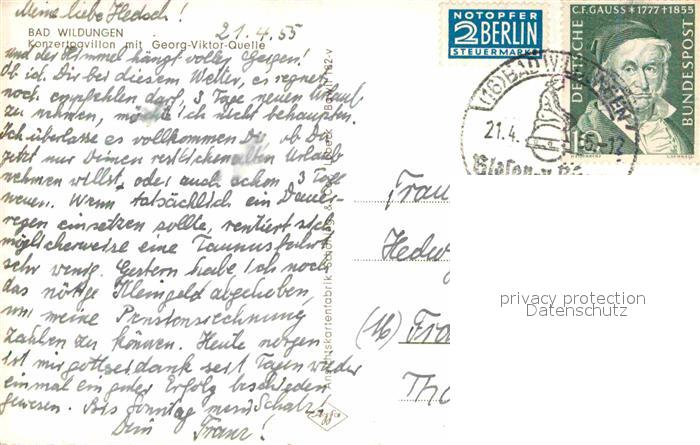 Meine liebe Hedsch!
21.4.55
BAD WILDUNGEN
Konzertpavillon mit Georg-Viktor-Quelle
und der Himmel hängt voller Geigen!
Ob ich Dir bei diesem Wetter, es regnet
noch empfehlen darf, 3 Tage neuen Urlaub
zu nehmen, möchte ich nicht behaupten.
Ich überlasse es vollkommen Dir, ob Du
jetzt nur Deinen restlichen alten Urlaub
nehmen willst, oder auch schon 3 Tage
neuen. Wenn tatsächlich ein Dauer-
regen einsetzen sollte, rentiert sich
möglicherweise eine Taunusfahrt
sehr wenig. Gestern habe ich noch
das nötige Kleingeld abgehoben,
um meine Pensionsrechnung
zahlen zu können. Heute morgen
ist mir gottseidank seit Tagen wieder
einmal ein guter Erfolg beschieden
gewesen. Bis Sonntag mein Schatz!
Dein Franz!
Ansichtskartenfabrik Schöning & Lübeck
NOTOPFER
2 BERLIN
STEUERMARKE
C.F.GAUSS * 1777 + 1855
DEUTSCHE
BUNDESPOST
10
(16) BAD WILDUNGEN
21.4. 55.-12
Frau
Hedwig
(16) Fra
Tho
privacy protection
Datenschutz